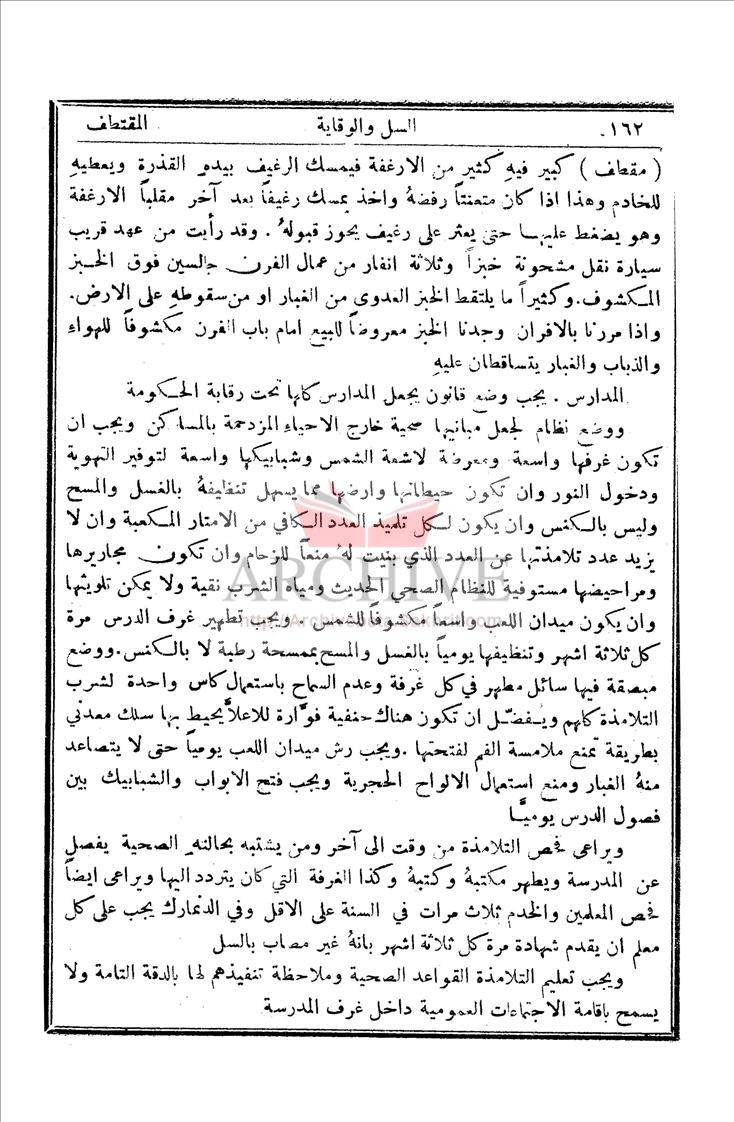 ١٦٢ السل والوقاية المقتطف
( مقطف ) كبير فيهِ كثير من الارغفة فيمسك الرغيف بيدهِ القذرة ويعطيهِ
للخادم وهذا اذا كان متعنتاً رفضهُ واخذ يمسك رغيفاً بعد آخر مقلباً الارغفة
وهو يضغط عليها حتى يعثر على رغيف يحوز قبولهُ . وقد رأيت من عهد قريب
سيارة نقل مشحونة خبزاً وثلاثة انفار من عمال الفرن جالسين فوق الخبز
المكشوف. وكثيراً ما يلتقط الخبز العدوى من الغبار او من سقوطهِ على الارض.
واذا مررنا بالافران وجدنا الخبز معروضاً للبيع امام باب الفرن مكشوفاً للهواء
والذباب والغبار يتساقطان عليهِ
المدارس . يجب وضع قانون يجعل المدارس كلها تحت رقابة الحكومة
ووضع نظام لجعل مبانيها صحية خارج الاحياء المزدحمة بالمساكن ويجب ان
تكون غرفها واسعة ومعرضة لاشعة الشمس وشبابيكها واسعة لتوفير التهوية
ودخول النور وان تكون حيطانها وارضها مما يسهل تنظيفهُ بالغسل والمسح
وليس بالكنس وان يكون لكل تلميذ العدد الكافي من الامتار المكعبة وان لا
يزيد عدد تلامذتها عن العدد الذي بنيت لهُ منعاً للزحام وان تكون مجاريرها
ومراحيضها مستوفية للنظام الصحي الحديث ومياه الشرب نقية ولا يمكن تلويثها
وان يكون ميدان اللعب واسعاً مكشوفاً للشمس . ويجب تطهير غرف الدرس مرة
كل ثلاثة اشهر وتنظيفها يومياً بالغسل والمسح بممسحة رطبة لا بالكنس. ووضع
مبصقة فيها سائل مطهر في كل غرفة وعدم السماح باستعمال كاس واحدة لشرب
التلامذة كلهم ويفضّل ان تكون هناك حنفية فوَّارة للاعلا يحيط بها سلك معدني
بطريقة تمنع ملامسة الفم لفتحتها . ويجب رش ميدان اللعب يومياً حتى لا يتصاعد
منهُ الغبار ومنع استعمال الالواح الحجرية ويجب فتح الابواب والشبابيك بين
فصول الدرس يوميًّا
ويراعى فحص التلامذة من وقت الى آخر ومن يشتبه بحالتهِ الصحية يفصل
عن المدرسة ويطهر مكتبهُ وكتبهُ وكذا الغرفة التي كان يتردد اليها ويراعى ايضاً
فحص المعلمين والخدم ثلاث مرات في السنة على الاقل وفي الدنمارك يجب على كل
معلم ان يقدم شهادة مرة كل ثلاثة اشهر بانهُ غير مصاب بالسل
ويجب تعليم التلامذة القواعد الصحية وملاحظة تنفيذهم لها بالدقة التامة ولا
يسمح باقامة الاجتماعات العمومية داخل غرف المدرسة
ARCHIVE